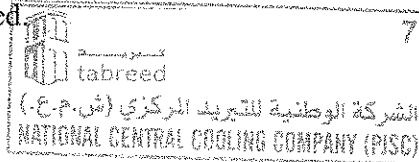 ed.
7
تبريد
tabreed
الشركة الوطنية للتبريد المركزي (ش.م.ع.)
NATIONAL CENTRAL COOLING COMPANY (PJSC)